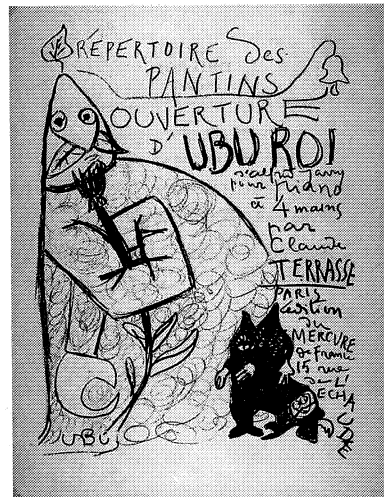 RÉPERTOIRE des
PANTINS
OUVERTURE
D'UBU ROI
d'alfred Jarry
pour Piano
à 4 mains
par
Claude
TERRASSE
PARIS
édition
du
MERCURE
de France
15 rue
de l'
ECHAUDÉ
UBU